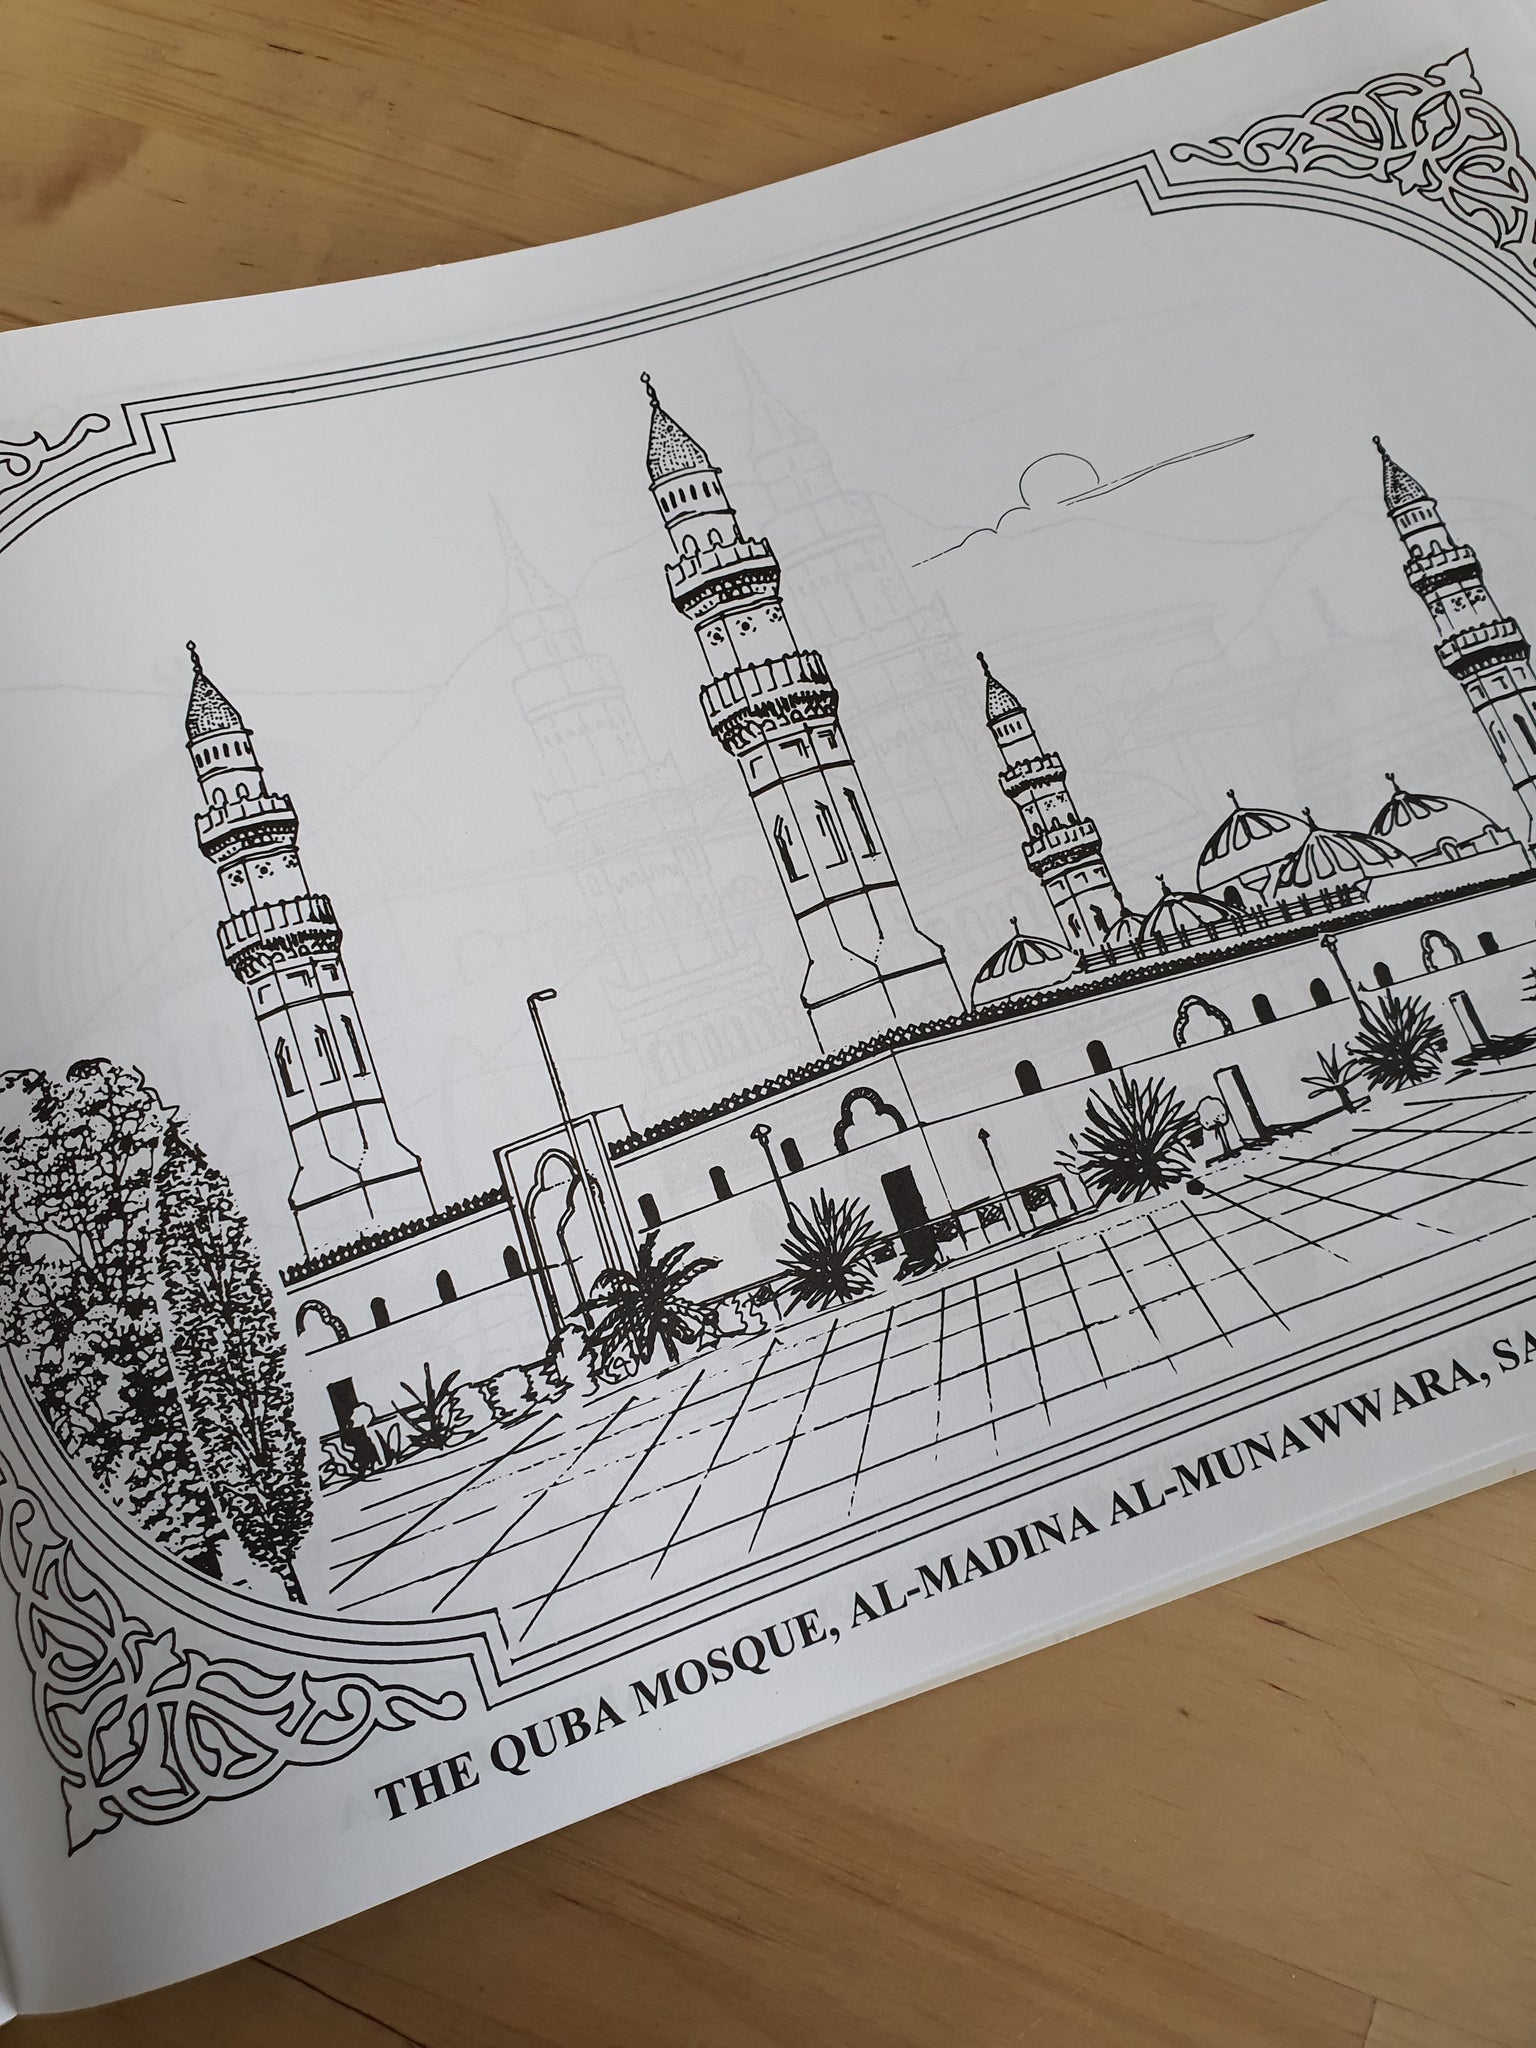 THE QUBA MOSQUE, AL-MADINA AL-MUNAWWARA, SA